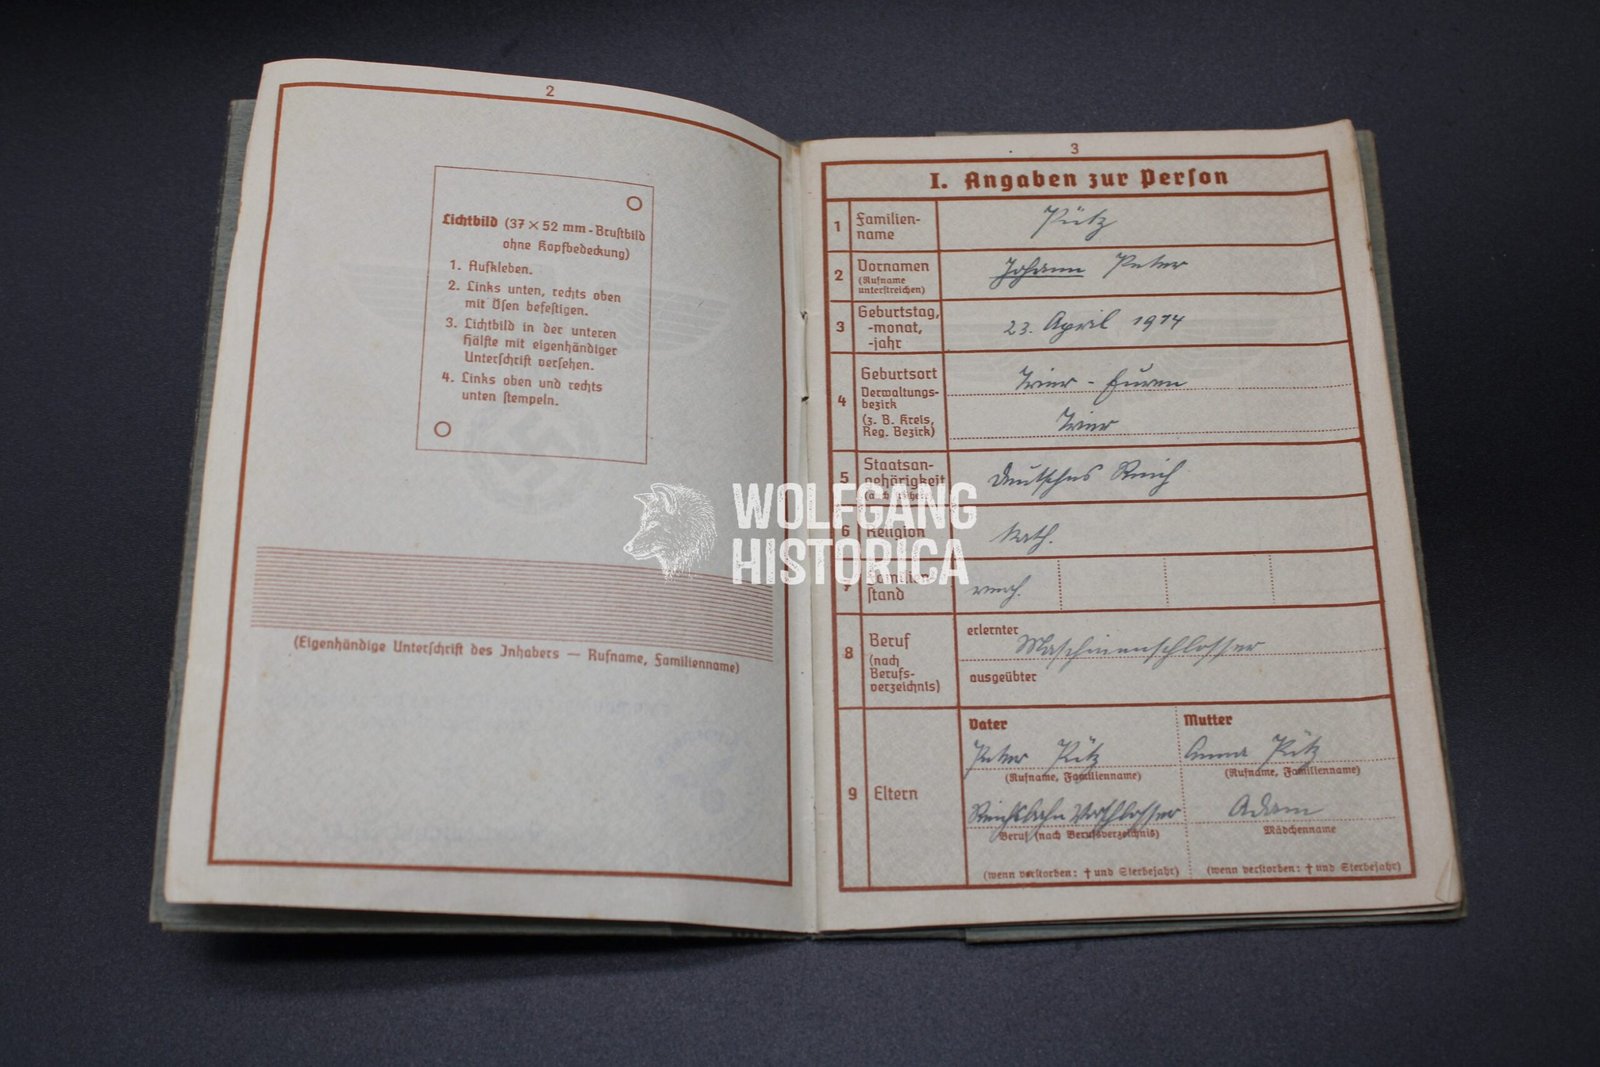 2
Lichtbild (37 × 52 mm - Brustbild
ohne Kopfbedeckung)
1. Aufkleben.
2. Links unten, rechts oben
mit Ösen befestigen.
3. Lichtbild in der unteren
Hälfte mit eigenhändiger
Unterschrift versehen.
4. Links oben und rechts
unten stempeln.
(Eigenhändige Unterschrift des Inhabers — Rufname, Familienname)
3
I. Angaben zur Person
1 Familien-
name
Pütz
2 Vornamen
(Rufname
unterstreichen)
Johann Peter
3 Geburtstag,
-monat,
-jahr
23. April 1914
4 Geburtsort
Verwaltungs-
bezirk
(z. B. Kreis,
Reg. Bezirk)
Trier - Euren
Trier
5 Staatsan-
gehörigkeit
Deutsches Reich
6 Religion
kath.
7 Familien-
stand
8 Beruf
(nach
Berufs-
verzeichnis)
erlernter
Maschinenschlosser
ausgeübter
9 Eltern
Vater
Peter Pütz
(Rufname, Familienname)
Reichsbahn
Beruf (nach Berufsverzeichnis)
(wenn verstorben: † und Sterbejahr)
Mutter
Anna Pütz
(Rufname, Familienname)
Adam
Mädchenname
(wenn verstorben: † und Sterbejahr)
WOLFGANG
HISTORICA